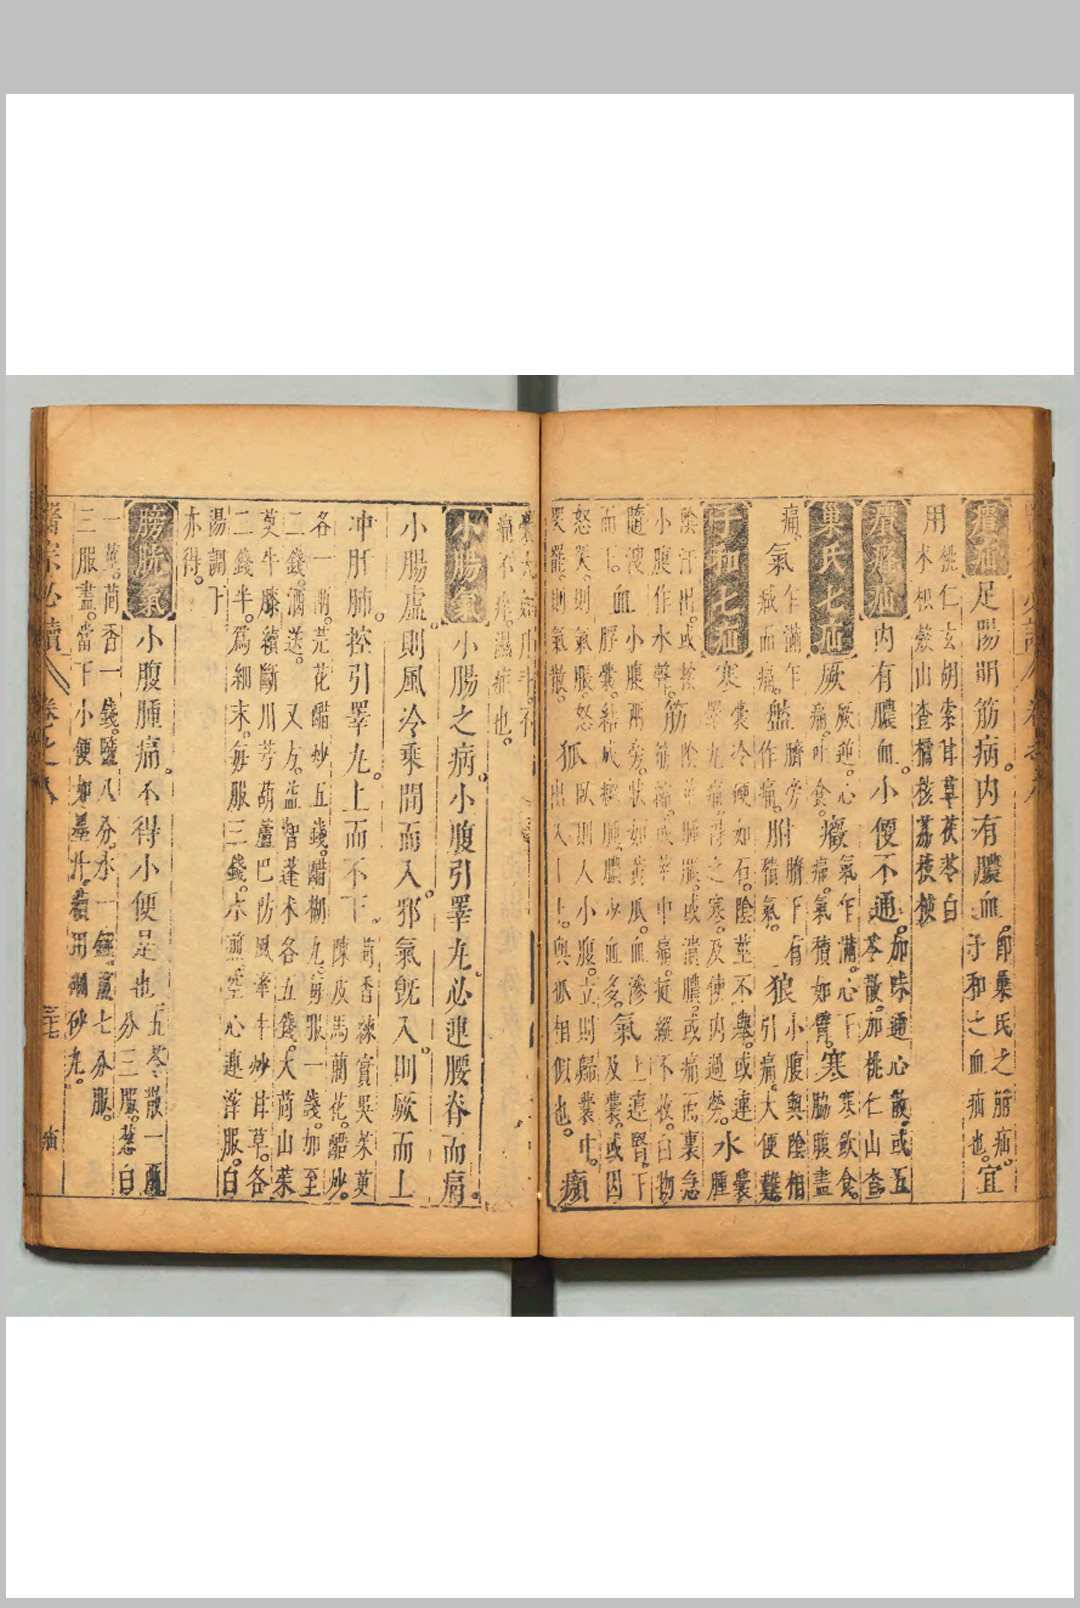 㿗疝 足陽明筋病內有膿血 即巢氏之㿗疝。子和之血疝也。宜
用 桃仁玄胡索甘草茯苓白朮松 山查橘核荔枝核
㿗癃疝 內有膿血小便不通。加味通心散。或五苓散。加桃仁山查
巢氏七疝 厥 厥逆心痛。吐食。癥 氣乍滿。心下痛。氣積如臂。寒 寒飲食。脇腹盡
痛。氣 乍滿乍減而痛。盤 臍旁作痛。胕 臍下有積氣。狼 小腹與陰相引痛。大便難
子和七疝 寒 囊冷硬如石。陰莖不舉。或連睪丸痛。得之寒。及使內過勞。水 囊腫
陰汗出。或痒 小腹作水聲。筋 陰莖腫脹。或潰膿。或痛而裏急筋縮。或莖中痛。挺縱不收。白物
隨溲而下。血 小腹兩旁。狀如黃瓜。血滲脬囊。結成癰膿。膿少血多。氣 上連腎。下及囊。或因
怒哭。則氣脹。怒哭罷。則氣散。狐 臥則入小腹。立則歸囊中。出入上下。與狐相似也。㿗
囊大如升斗。不痛不痒。濕症也。
小腸氣 小腸之病。小腹引睪丸。必連腰脊而痛。
小腸虛。則風冷乘間而入。邪氣旣入。則厥而上
冲肝肺。控引睪丸。上而不下。茴香練實吳茱萸陳皮馬藺花。醋炒。
各一兩。芫花醋炒五錢。醋糊丸。每服一錢。加至二錢。酒送。又方。益智蓬朮各五錢。大茴山茱
萸牛膝續斷川芎葫蘆巴防風牽牛炒甘草。各二錢半。爲細末。每服三錢。水煎空心連滓服。白
湯調下亦得。
膀胱氣 小腹腫痛。不得小便是也 五苓散一兩分三服。葱白
一莖。茴香一錢。鹽八分。水一鍾。煎七分服。三服盡。當下小便如墨汁。續用硇砂丸。
醫宗必讀 卷之八 三十七 疝